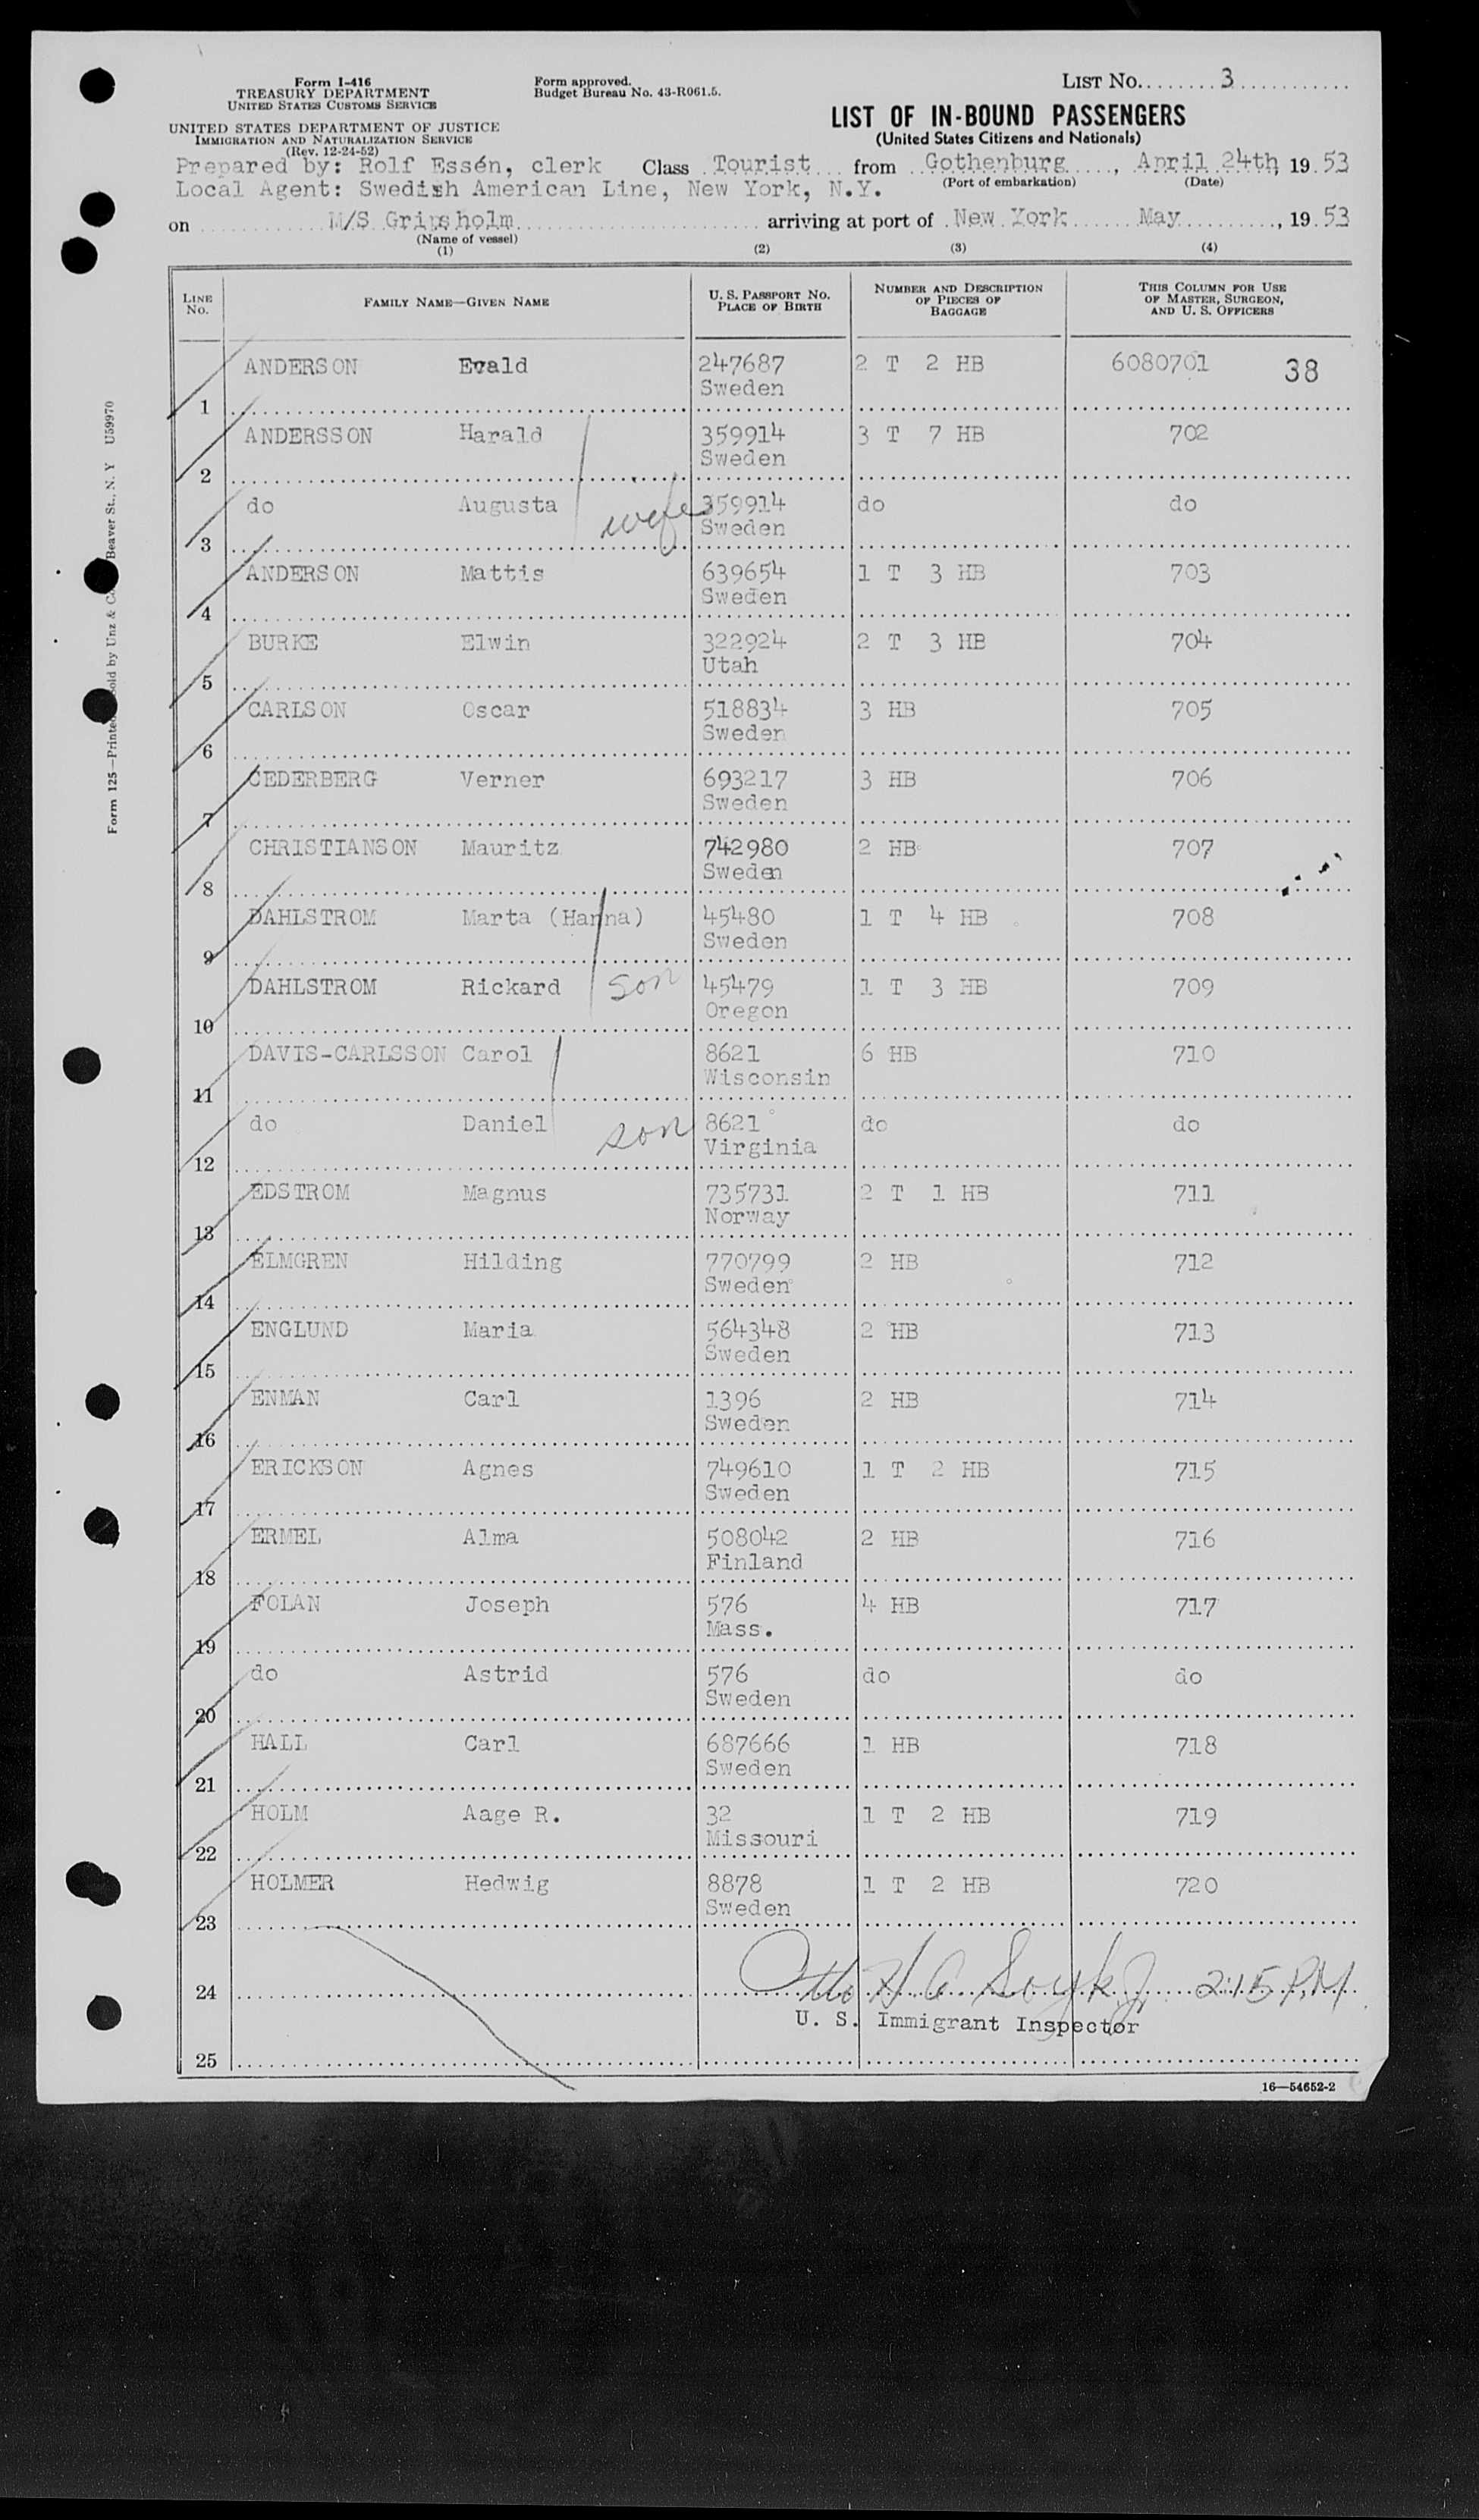 Form I-416
TREASURY DEPARTMENT
UNITED STATES CUSTOMS SERVICE
UNITED STATES DEPARTMENT OF JUSTICE
IMMIGRATION AND NATURALIZATION SERVICE
(Rev. 12-24-52)
Form approved.
Budget Bureau No. 43-R061.5.
LIST NO. 3
LIST OF IN-BOUND PASSENGERS
(United States Citizens and Nationals)
Prepared by: Rolf Essén, clerk Class Tourist from Gothenburg, April 24th, 19 53
(Port of embarkation) (Date)
Local Agent: Swedish American Line, New York, N.Y.
on M/S Gripsholm arriving at port of New York May, 19 53
(Name of vessel)
(1) (2) (3) (4)
LINE NO. FAMILY NAME—GIVEN NAME U. S. PASSPORT NO. PLACE OF BIRTH NUMBER AND DESCRIPTION OF PIECES OF BAGGAGE THIS COLUMN FOR USE OF MASTER, SURGEON, AND U. S. OFFICERS
ANDERSON Evald 247687 2 T 2 HB 6080701 38
Sweden
1
ANDERSSON Harald 359914 3 T 7 HB 702
Sweden
2
do Augusta wife 359914 do do
Sweden
3
ANDERSON Mattis 639654 1 T 3 HB 703
Sweden
4
BURKE Elwin 322924 2 T 3 HB 704
Utah
5
CARLSON Oscar 518834 3 HB 705
Sweden
6
CEDERBERG Verner 693217 3 HB 706
Sweden
7
CHRISTIANSON Mauritz 742980 2 HB 707
Sweden
8
DAHLSTROM Marta (Hanna) 45480 1 T 4 HB 708
Sweden
9
DAHLSTROM Rickard son 45479 1 T 3 HB 709
Oregon
10
DAVIS-CARLSSON Carol 8621 6 HB 710
Wisconsin
11
do Daniel son 8621 do do
Virginia
12
EDSTROM Magnus 735731 2 T 1 HB 711
Norway
13
ELMGREN Hilding 770799 2 HB 712
Sweden
14
ENGLUND Maria 564348 2 HB 713
Sweden
15
ENMAN Carl 1396 2 HB 714
Sweden
16
ERICKSON Agnes 749610 1 T 2 HB 715
Sweden
17
ERMEL Alma 508042 2 HB 716
Finland
18
FOLAN Joseph 576 4 HB 717
Mass.
19
do Astrid 576 do do
Sweden
20
HALL Carl 687666 1 HB 718
Sweden
21
HOLM Aage R. 32 1 T 2 HB 719
Missouri
22
HOLMER Hedwig 8878 1 T 2 HB 720
Sweden
23
24 Otto H 2:15 P.M.
U. S. Immigrant Inspector
25
16—54652-2
Form 125—Printed sold by Unz & Co Beaver St., N. Y U59970